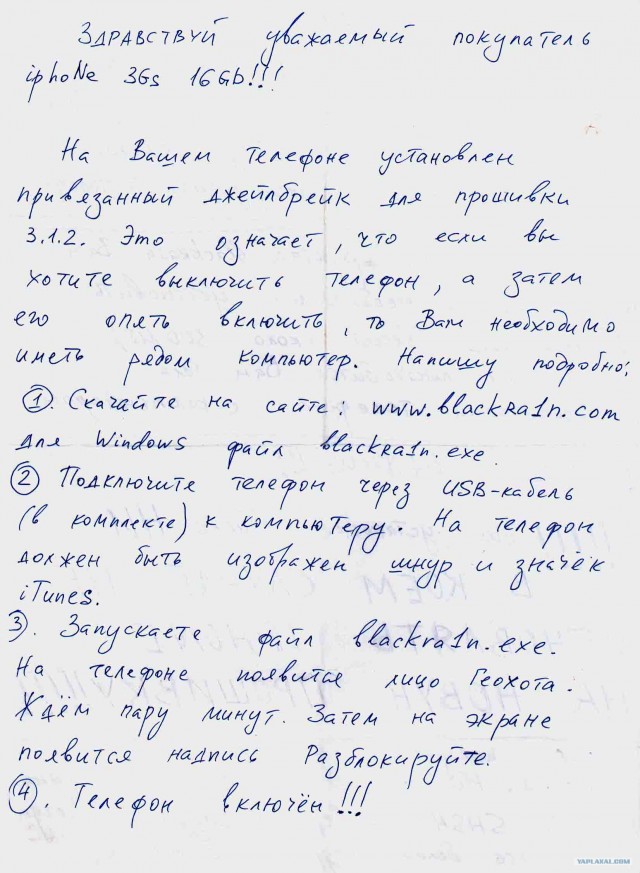 Здравствуй уважаемый покупатель
iphoNe 3Gs 16Gb!!!
На Вашем телефоне установлен
привязанный джейлбрейк для прошивки
3.1.2. Это означает, что если вы
хотите выключить телефон, а затем
его опять включить, то Вам необходимо
иметь рядом компьютер. Напишу подробно:
1. Скачайте на сайте: www.blackra1n.com
для Windows файл blackra1n.exe
2 Подключите телефон через USB-кабель
(в комплекте) к компьютеру. На телефон
должен быть изображен шнур и значёк
iTunes.
3. Запускаете файл blackra1n.exe.
На телефоне появится лицо Геохота.
Ждём пару минут. Затем на экране
появится надпись Разблокируйте.
4. Телефон включён!!!
YAPLAKAL.COM